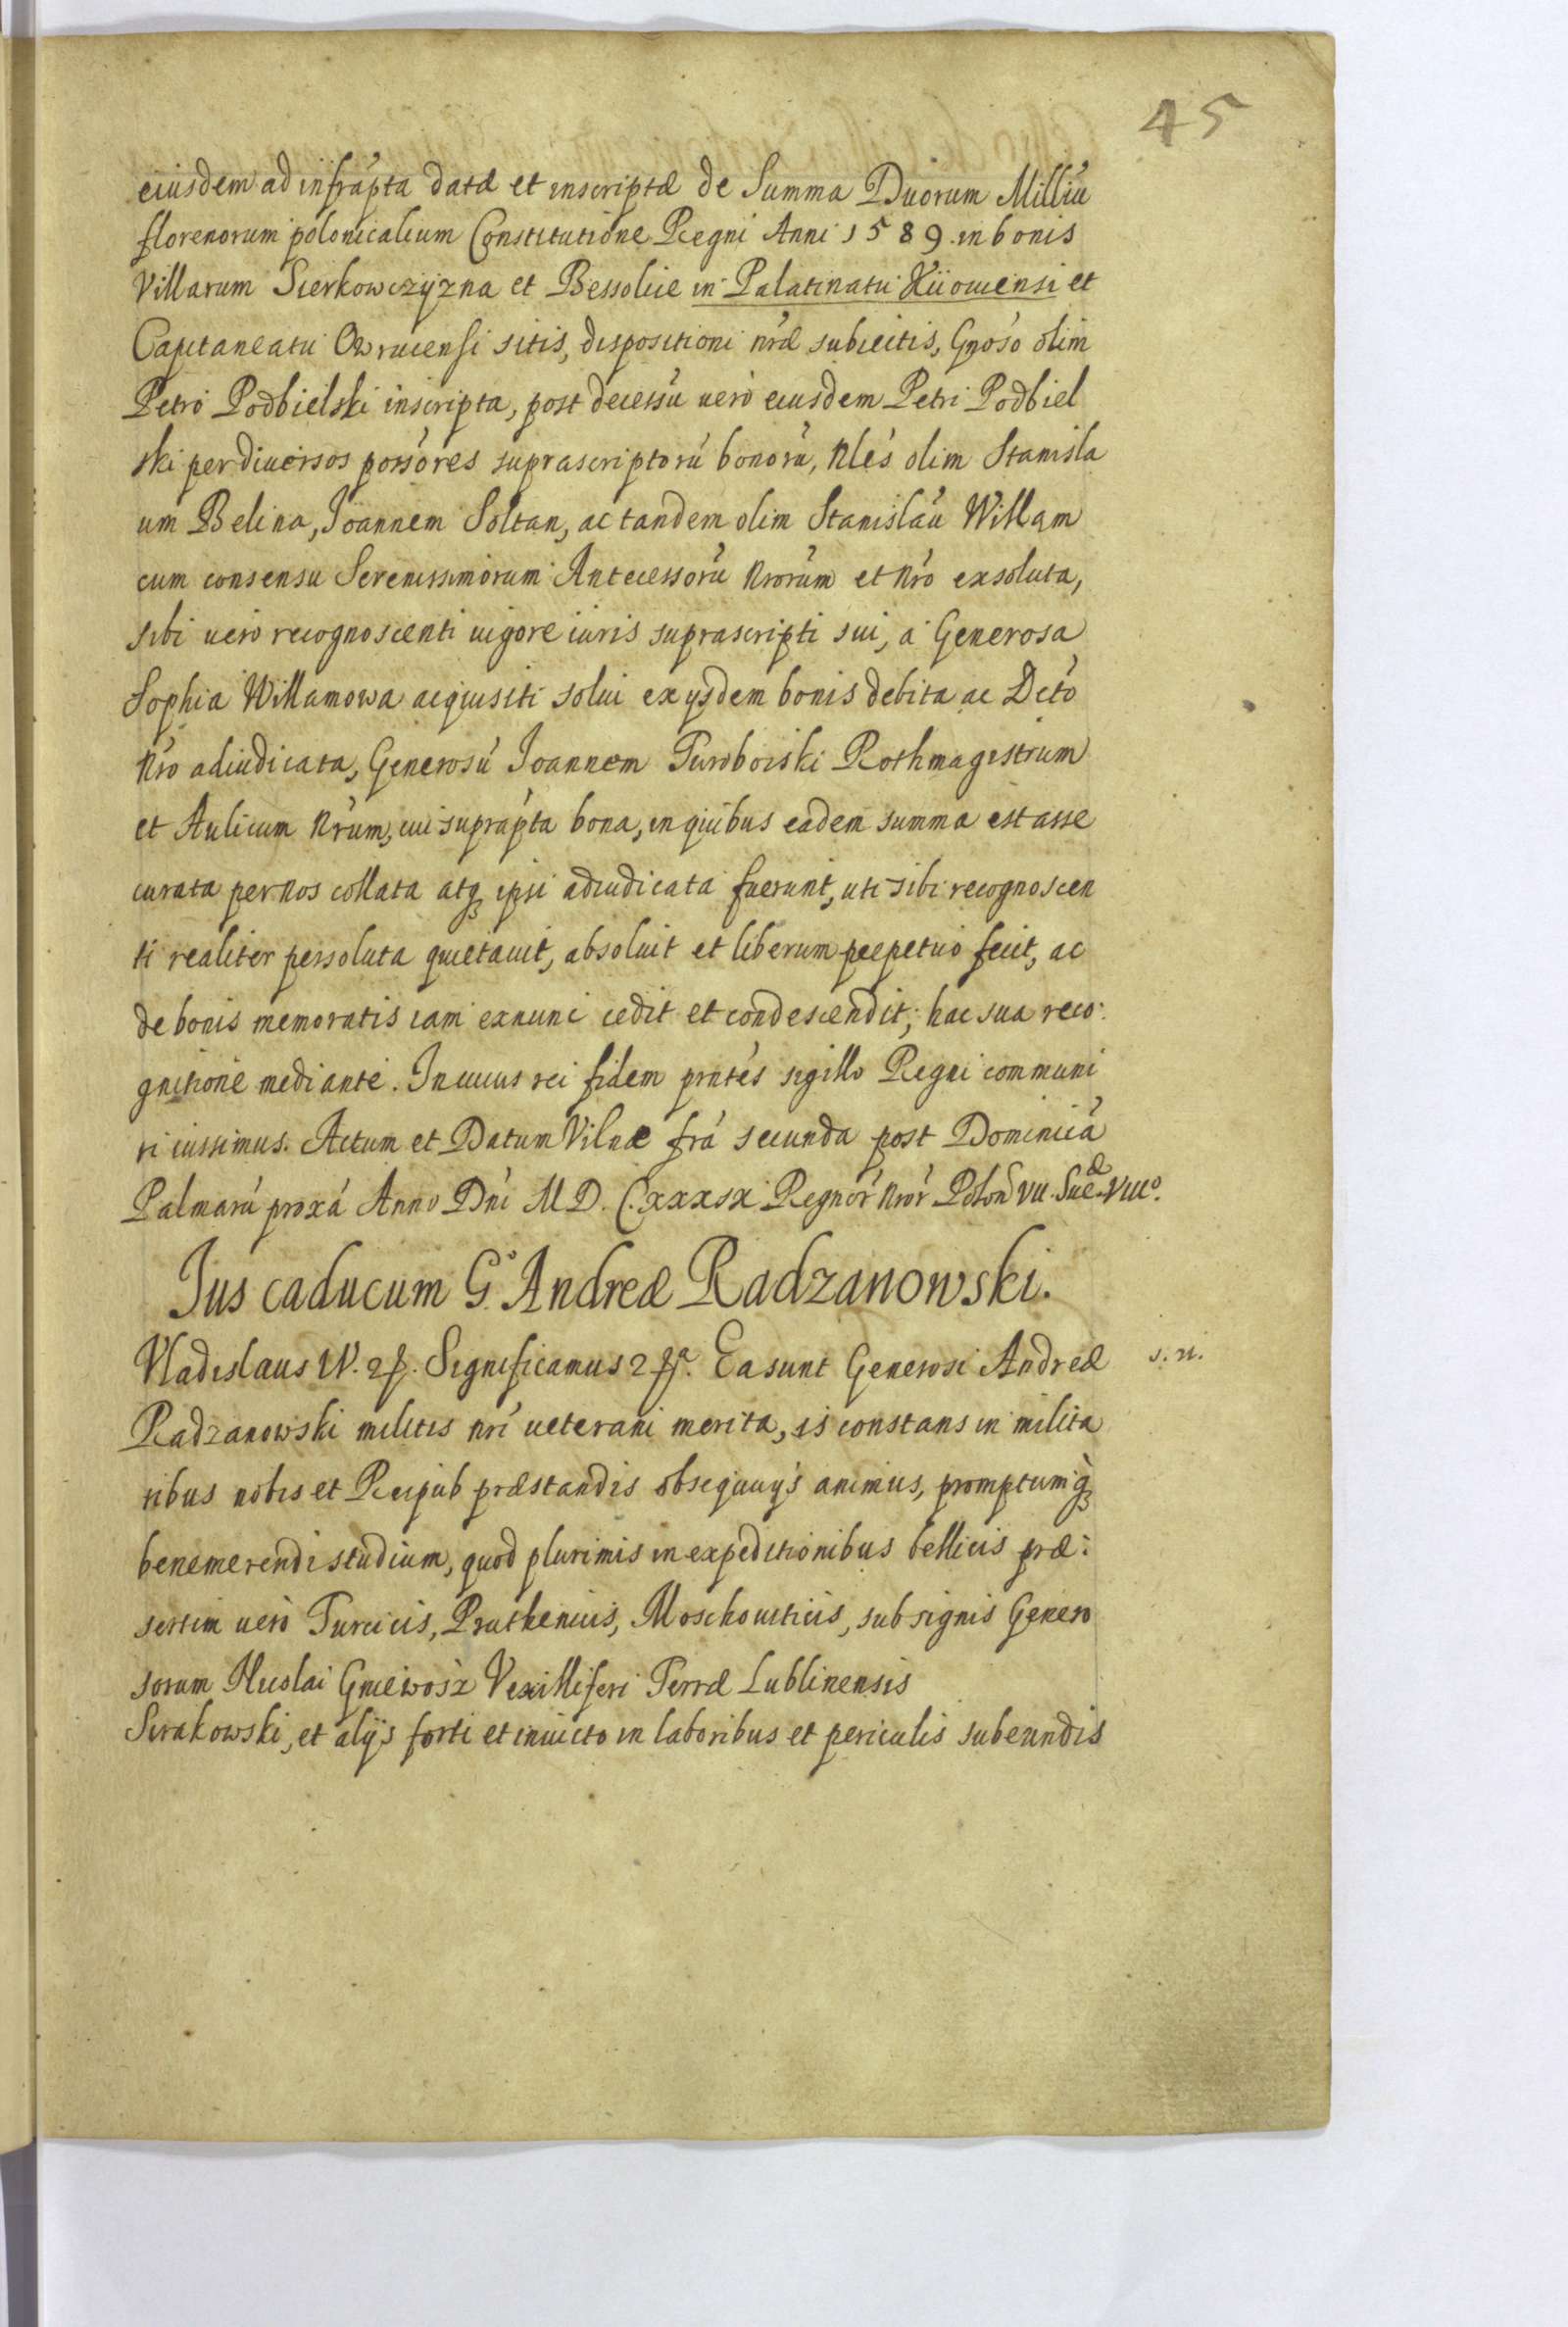 45
eiusdem ad infrap̃ta datæ et inscriptæ de Summa Duorum Milliũ
florenorum polonicalium Constitutione Regni Anni 1589. in bonis
Villarum Sierkowczÿzna et Bessolie in Palatinatu Kiiouiensi et
Capitaneatu Owruciensi sitis, dispositioni nr̃æ subiectis, Gnoso olim
Petro Podbielski inscripta, post decessũ uerò eiusdem Petri Podbiel
ski per diuersos poss̃ores suprascriptorũ bonorũ, Nles olim Stanisla
um Belina, Joannem Soltan, ac tandem olim Stanislaũ Willam
cum consensu Serenissimorum Antecessorũ Nrorum et Nro exsoluta,
sibi uero recognoscenti uigore iuris suprascripti sui, a Generosa
Sophia Willamowa acquisiti solui ex ysdem bonis debita ac Dctõ
Nro adiudicata, Generosũ Joannem Turoboiski Rothmagistrum
et Aulicum Nrum, cui suprap̃ta bona, in quibus eadem summa est asse
curata per nos collata atq ipsi adiudicata fuerunt, uti sibi recognoscen
ti realiter persoluta quietauit, absoluit et liberum peepetuo fecit, ac
de bonis memoratis iam exnunc cedit et condescendit, hac sua reco:
gnitione mediante. In cuius rei fidem pntes sigillo Regni communi
ri iussimus. Actum et Datum Vilnæ frã secunda post Dominicã
Palmarũ proxã Anno Dni M D. C. xxxix Regnor Nror Polon VII. Suæ. VIIIº.
Jus caducum G. Andreæ Radzanowski.
Vladislaus IV. 2f. Significamus 2ffa. Ea sunt Generosi Andreæ s. n.
Radzanowski militis nri ueterani merita, is constans in milita
ribus nobis et Reipub præstandis obsequys animus, promptumq
benemerendi studium, quod plurimis in expeditionibus bellicis præ:
sertim uerò Turcicis, Pruthenicis, Moschouiticis, sub signis Genero
sorum Nicolai Gniewosz Vexilliferi Terræ Lublinensis
Sirakowski, et alÿs forti et inuicto in laboribus et periculis subeundis